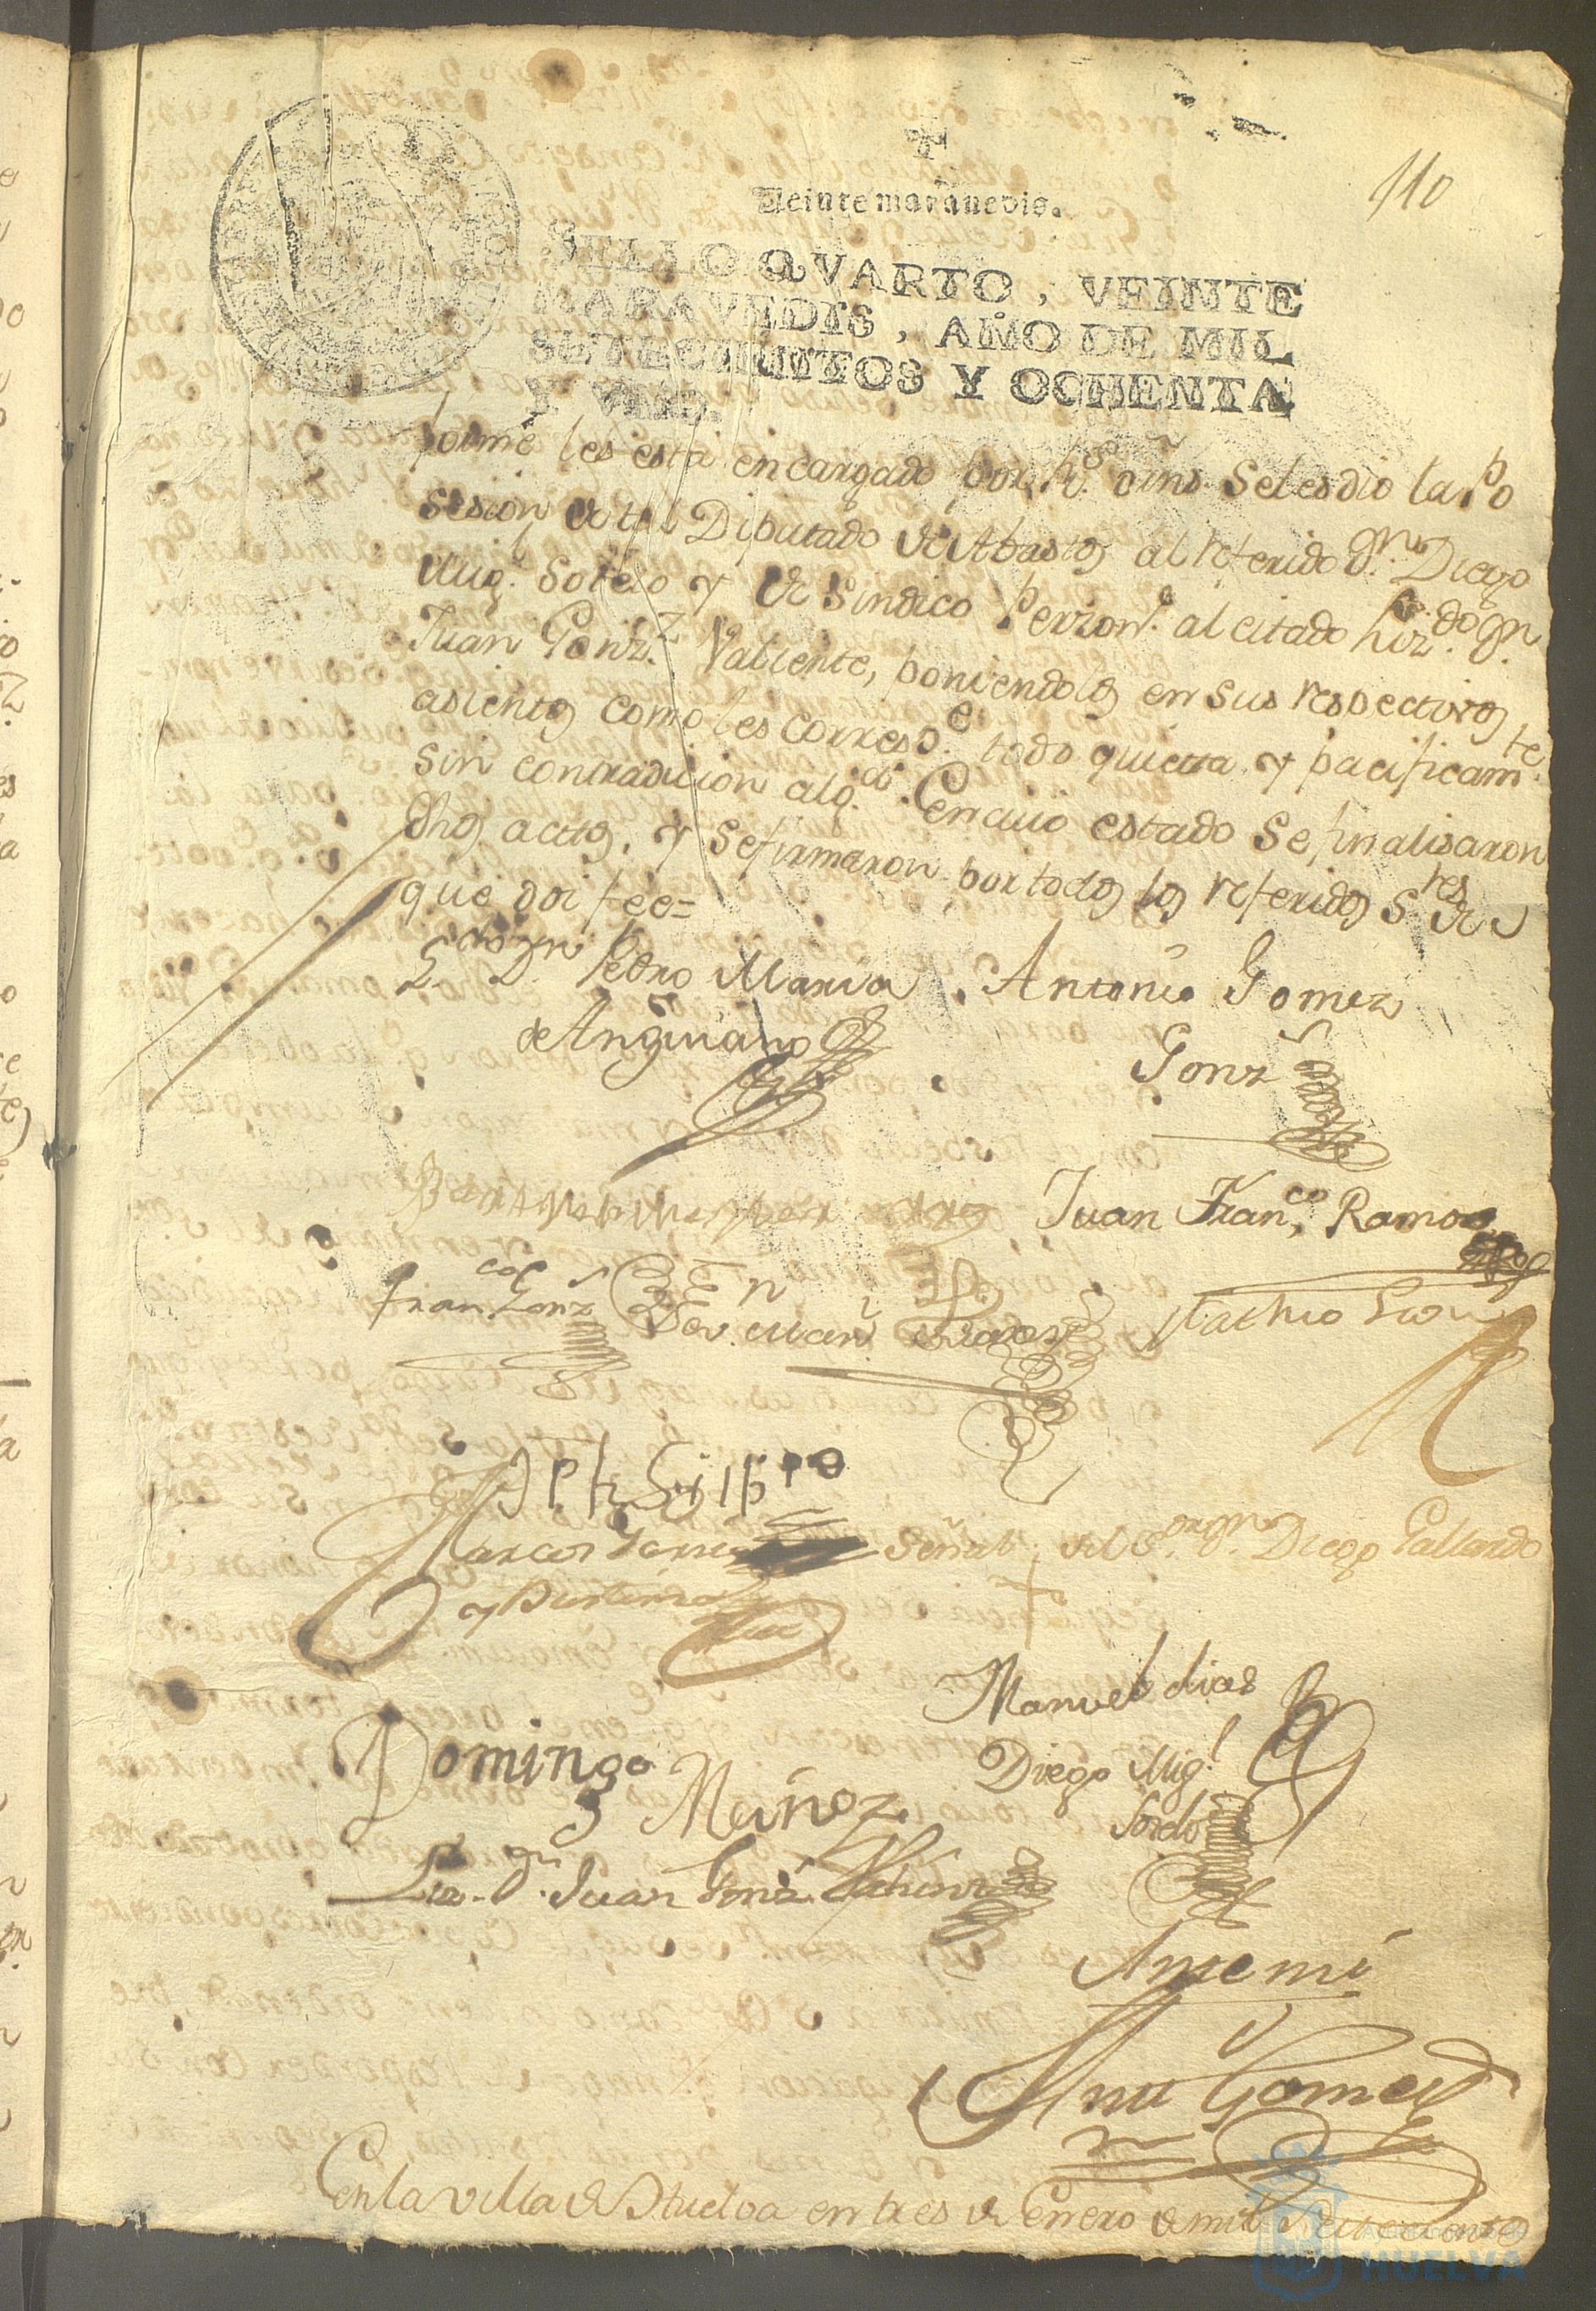 110
Veinte maravedis.
SELLO QVARTO, VEINTE
MARAVEDIS, AÑO DE MIL
SETECIENTOS Y OCHENTA
Y VNO.
forme les está encargado por rs. ōrns. Se les dio la Po
sesion de tal Diputado de Abastos al referido Dn. Diego
Migl. Sordo y de Sindico Perzonl. al citado liz.do Dn.
Juan Gonz.z Valiente, poniendolos en sus respectivos
asientos como les corresp.e todo quieta y pacificam.te
sin contradicion alg.a En cuio estado se finalisaron
dhos actos, y se firmaron por todos los referidos S.res de
que doi fee=
L.do Dn. Pedro Maria
de Anguiano
Antonio Gomez
Gonz
Juan Fran.co Ramos
Fran.co Gonz
Marcos Garcia
Señal del S.or Dn. Diego Gallardo
Manuel dias
Domingo
Muñoz
Diego Mig.l
Sordo
Liz. Dn. Juan Gonz. Valiente
Ante mi
Gomez
En la villa de Huelva en tres de Enero de mil Setecientos
HUELVA